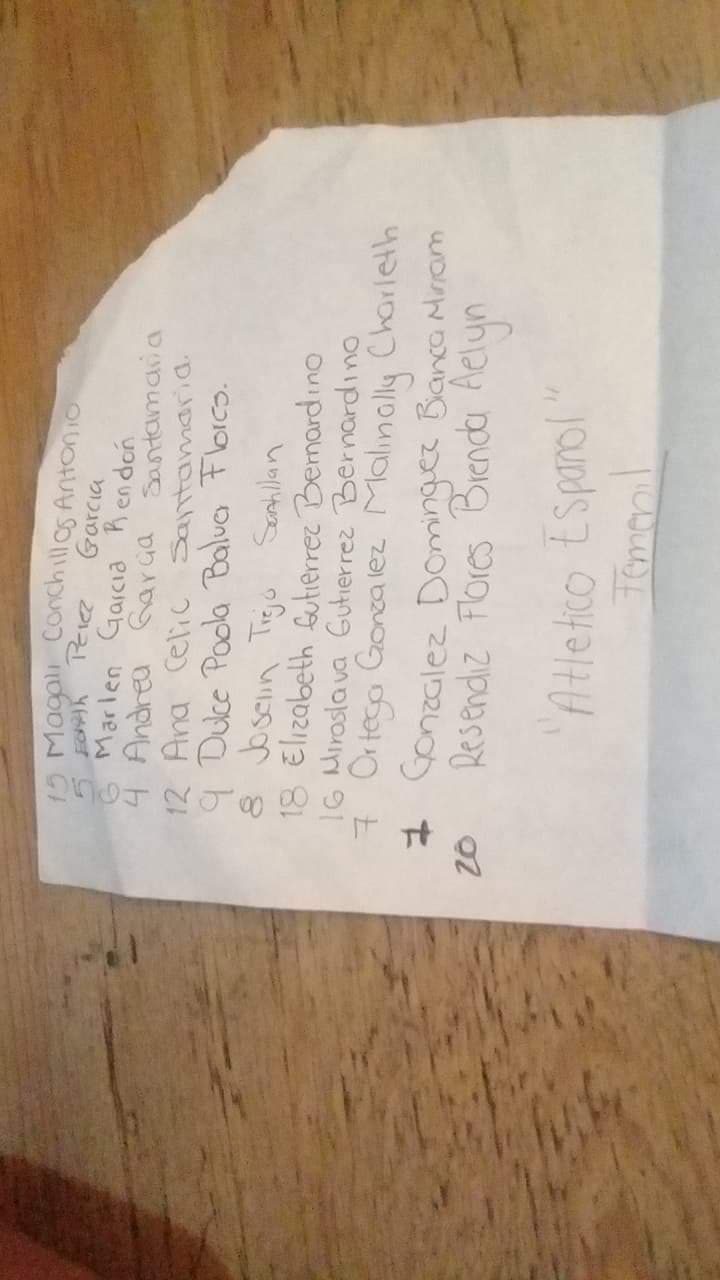 15 Magali Conchillos Antonio
5 Edith Perez Garcia
6 Marlen Garcia Rendón
4 Andrea Garcia Santamaria
12 Ana Celic Santamaria.
9 Dulce Paola Balva Flores.
8 Joselin Trejo Santillan
18 Elizabeth Gutierrez Bernardino
16 Miroslava Gutierrez Bernardino
7 Ortega Gonzalez Malinally Charleth
Gonzalez Dominguez Bianca Miriam
20 Resendiz Flores Brenda Aelyn
"Atletico Español"
Femenil